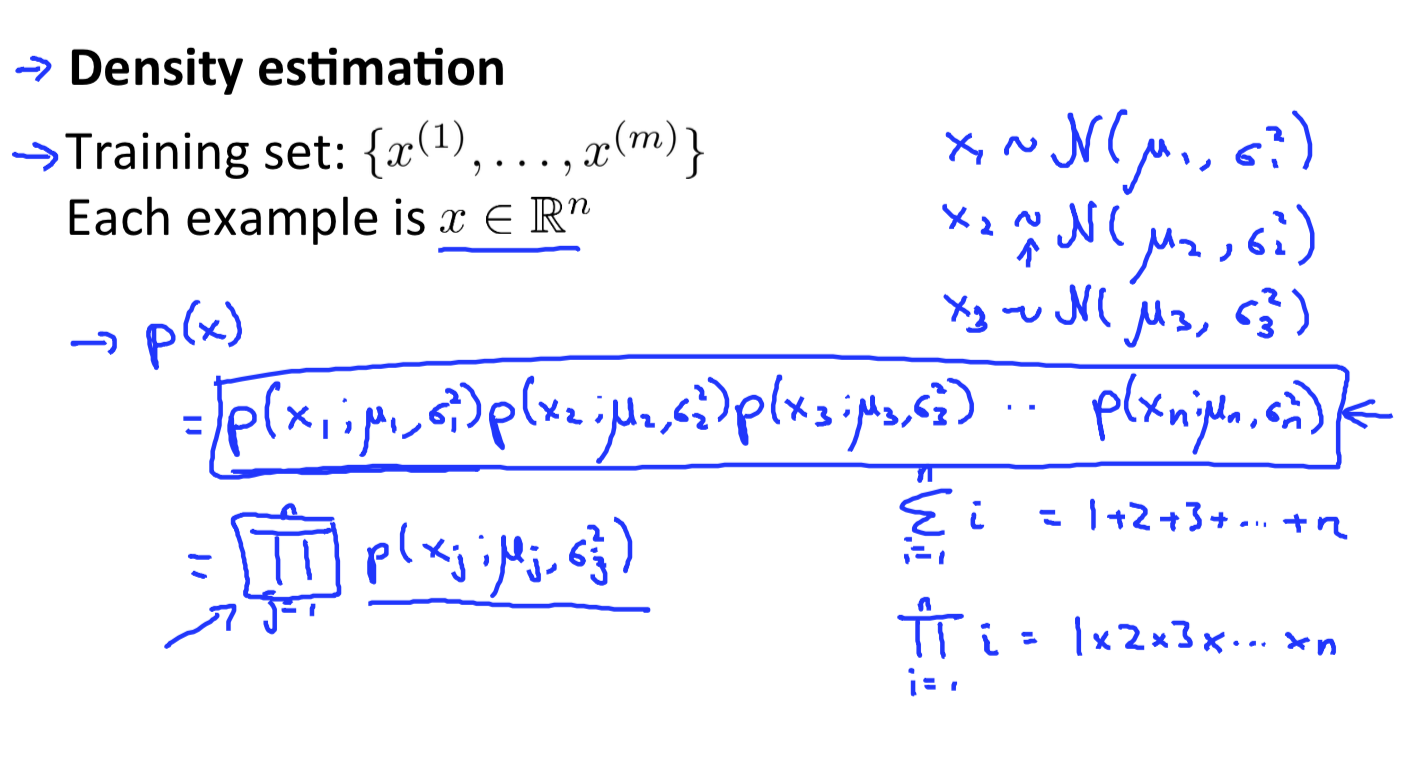 → Density estimation
→ Training set: {x⁽¹⁾, . . . , x⁽ᵐ⁾}
Each example is x ∈ ℝⁿ
x₁ ~ N(μ₁, σ₁²)
x₂ ~ N(μ₂, σ₂²)
x₃ ~ N(μ₃, σ₃²)
→ p(x)
= p(x₁; μ₁, σ₁²) p(x₂; μ₂, σ₂²) p(x₃; μ₃, σ₃²) ·· p(xₙ; μₙ, σₙ²) ←
= ∏ⱼ₌₁ⁿ p(xⱼ; μⱼ, σⱼ²)
∑ᵢ₌₁ⁿ i = 1+2+3+...+n
∏ᵢ₌₁ⁿ i = 1×2×3×...×n